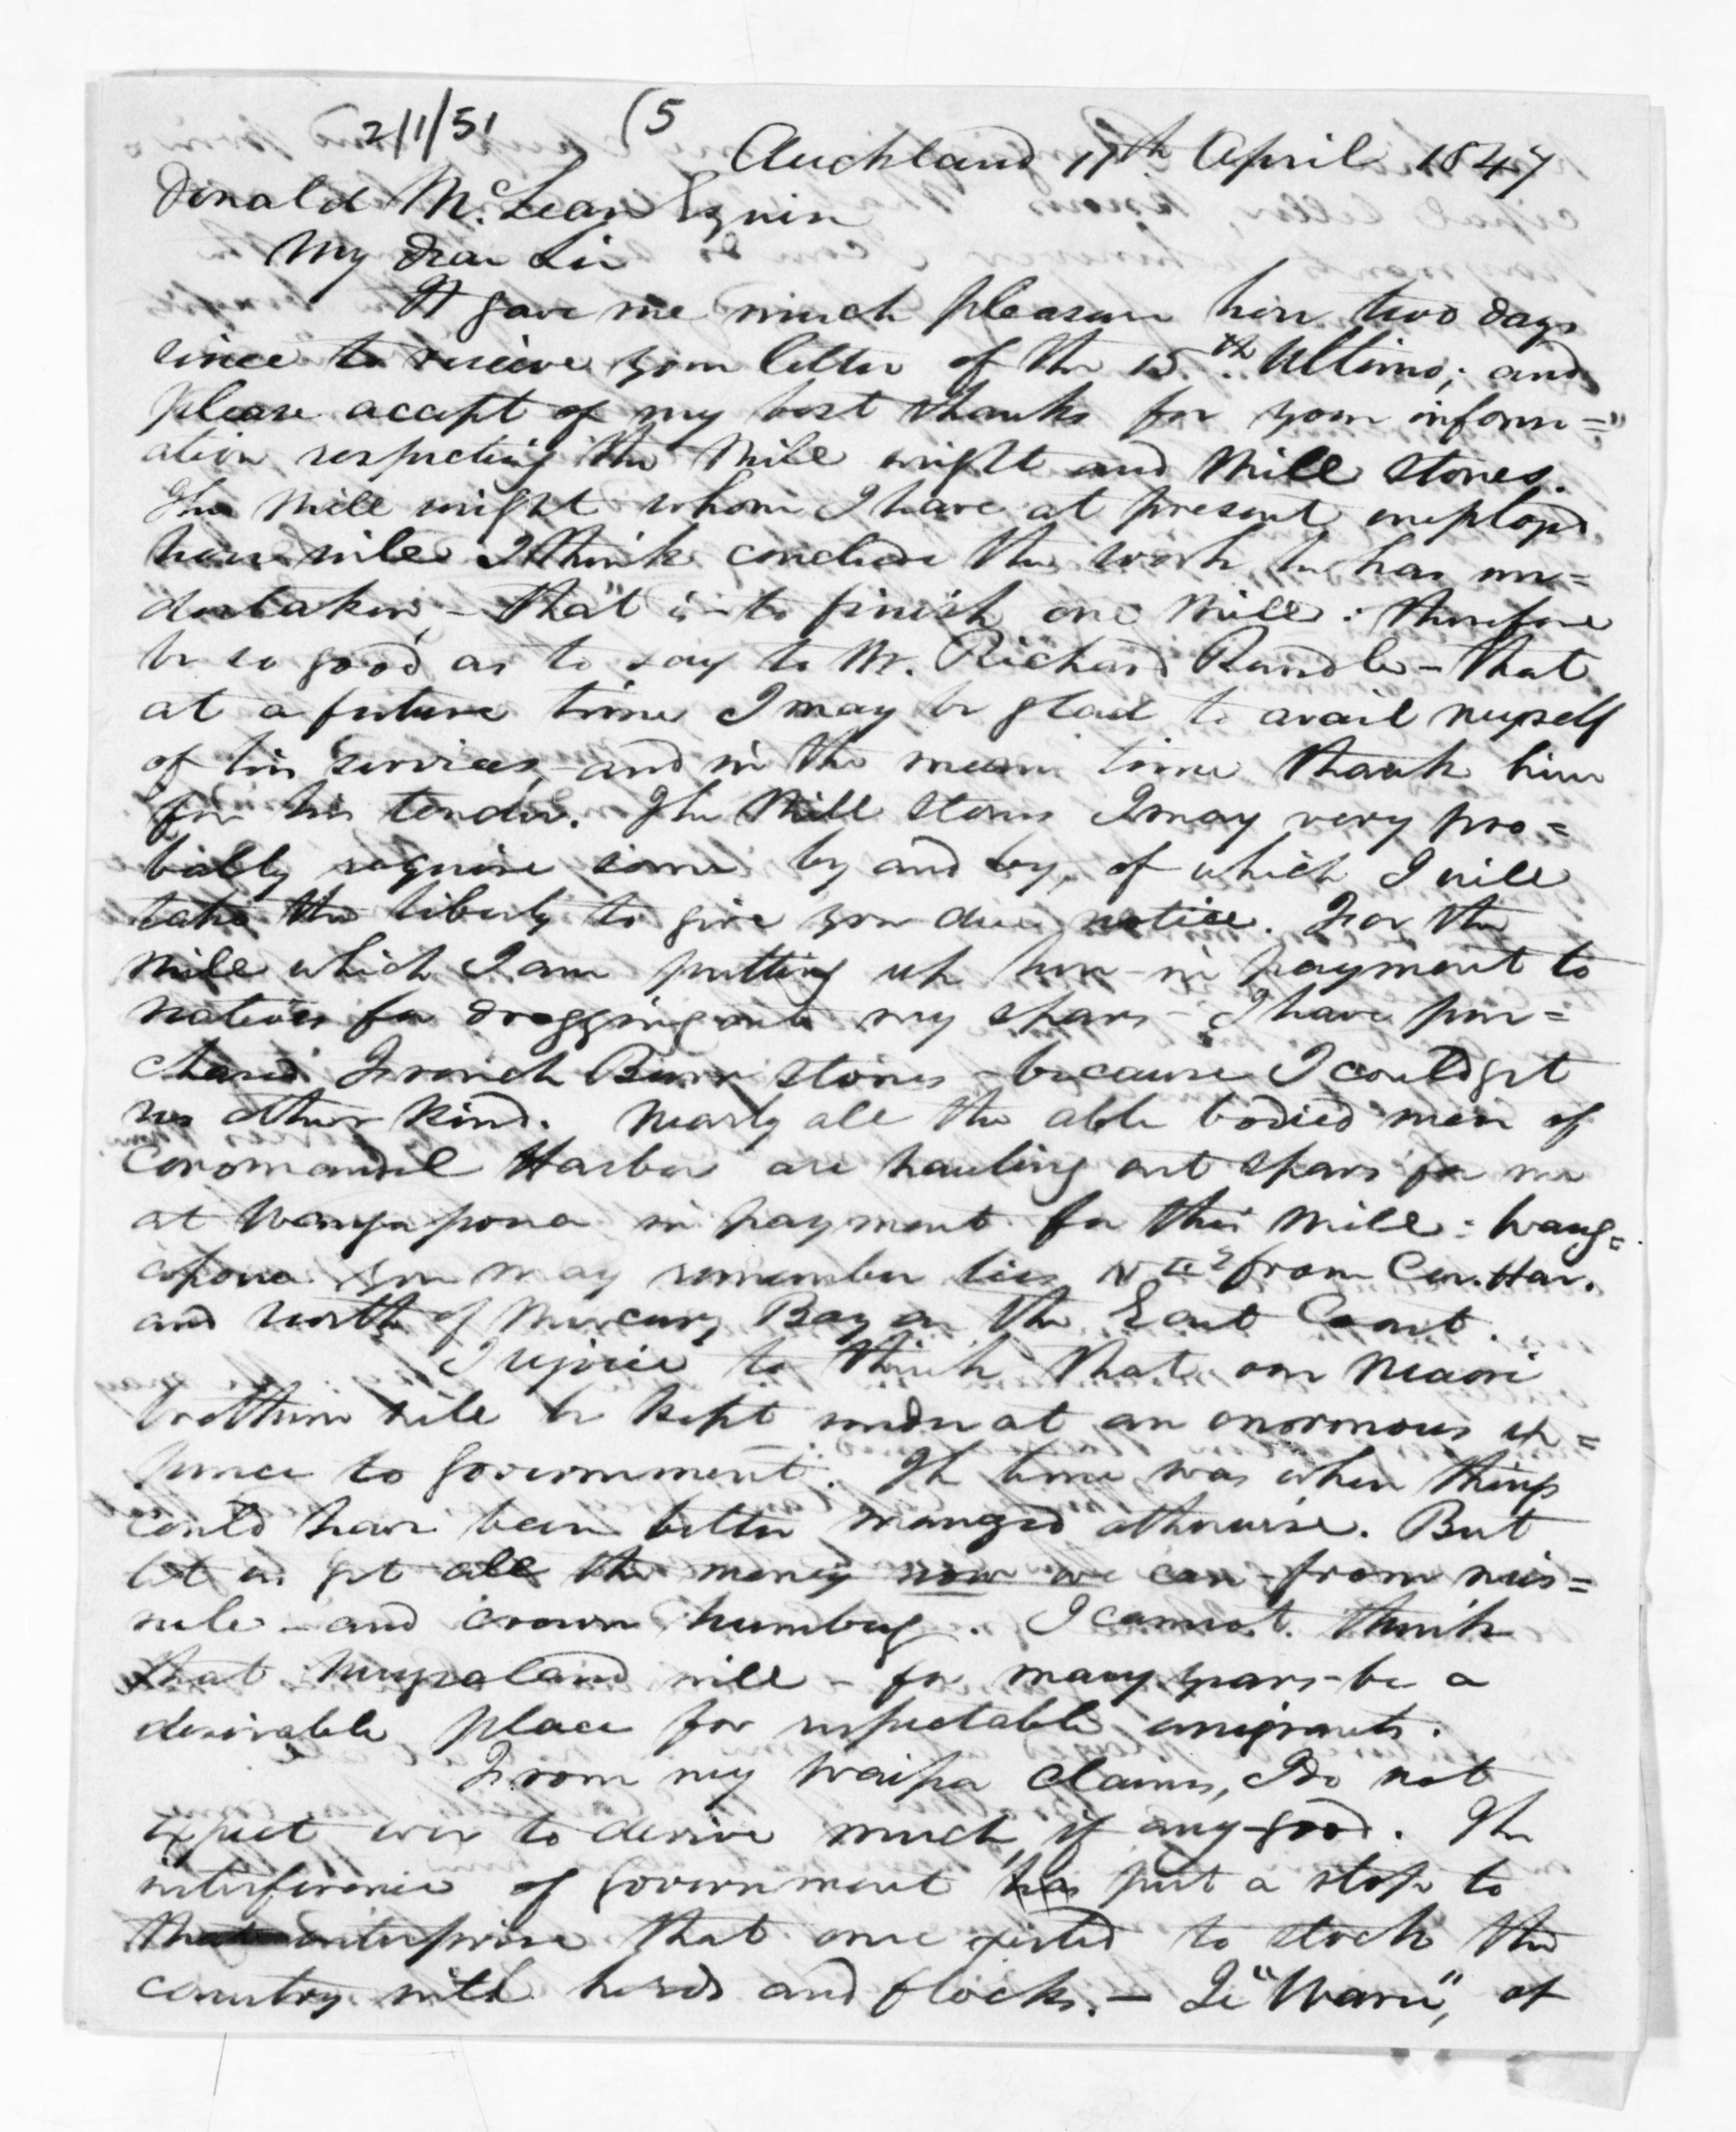 2/1/51 (5
Auckland 17th April 1847
Donald McLean Esquire
My dear Sir
It gave me much pleasure here two days
since to receive your letter of the 15th Ultimo; and
please accept of my best thanks for your inform=
ation respecting the Mill wright and Mill stones.
The Mill wright whom I have at present employed
here will I think conclude the work he has un=
dertaken, - that is - to finish one Mill: therefore
be so good as to say to Mr. Richard Rundle - that
at a future time I may be glad to avail myself
of his services, and in the mean time thank him
for his tender. The Mill stones I may very pro=
bably require some by and by, of which I will
take the liberty to give you due notice. For the
Mill which I am putting up here - in payment to
natives for dragging out my spars - I have pur=
chased French Burr stones - because I could get
no other kind. Nearly all the able bodied men of
Coromandel Harbor are hauling out spars for me
at Wangapoua in payment for this Mill: Wang=
apoua you may remember lies from Cor. Har.
and north of Mercury Bay on the East Coast.
I rejoice to think that our Maori
brethern will be kept under at an enormous ex=
pence to government. The time was when things
could have been better manged otherwise. But
let us get all the money now we can - from mis=
rule - and crown humbug. I cannot think
that Nuyzaland will - for many years - be a
desirable place for respectable emigrants.
From my Waipa Claims, I do not
expect ever to derive much, if any good. The
interference of government has put a stop to
that enterprise that once existed to stock the
country with herds and flocks. - Te "Waru", of